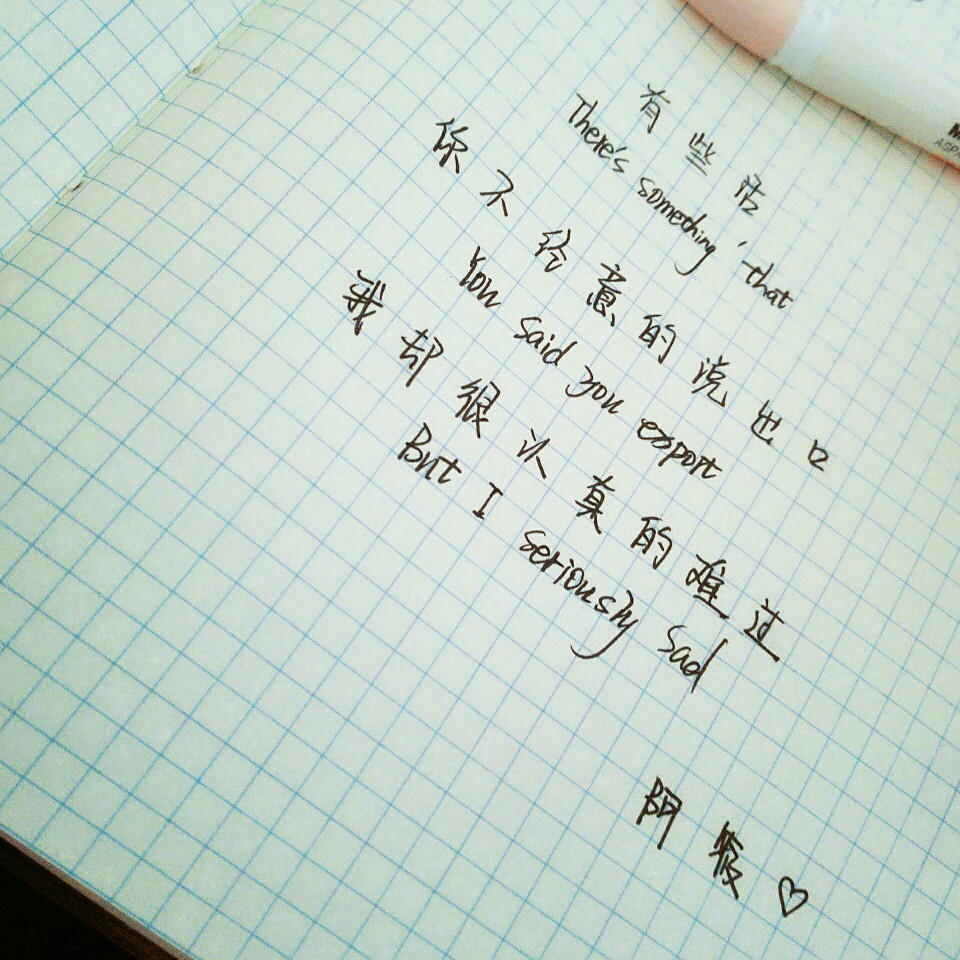 有些话
There's something that
你不经意的说出口
You said you export
我却很认真的难过
But I seriously sad
阿